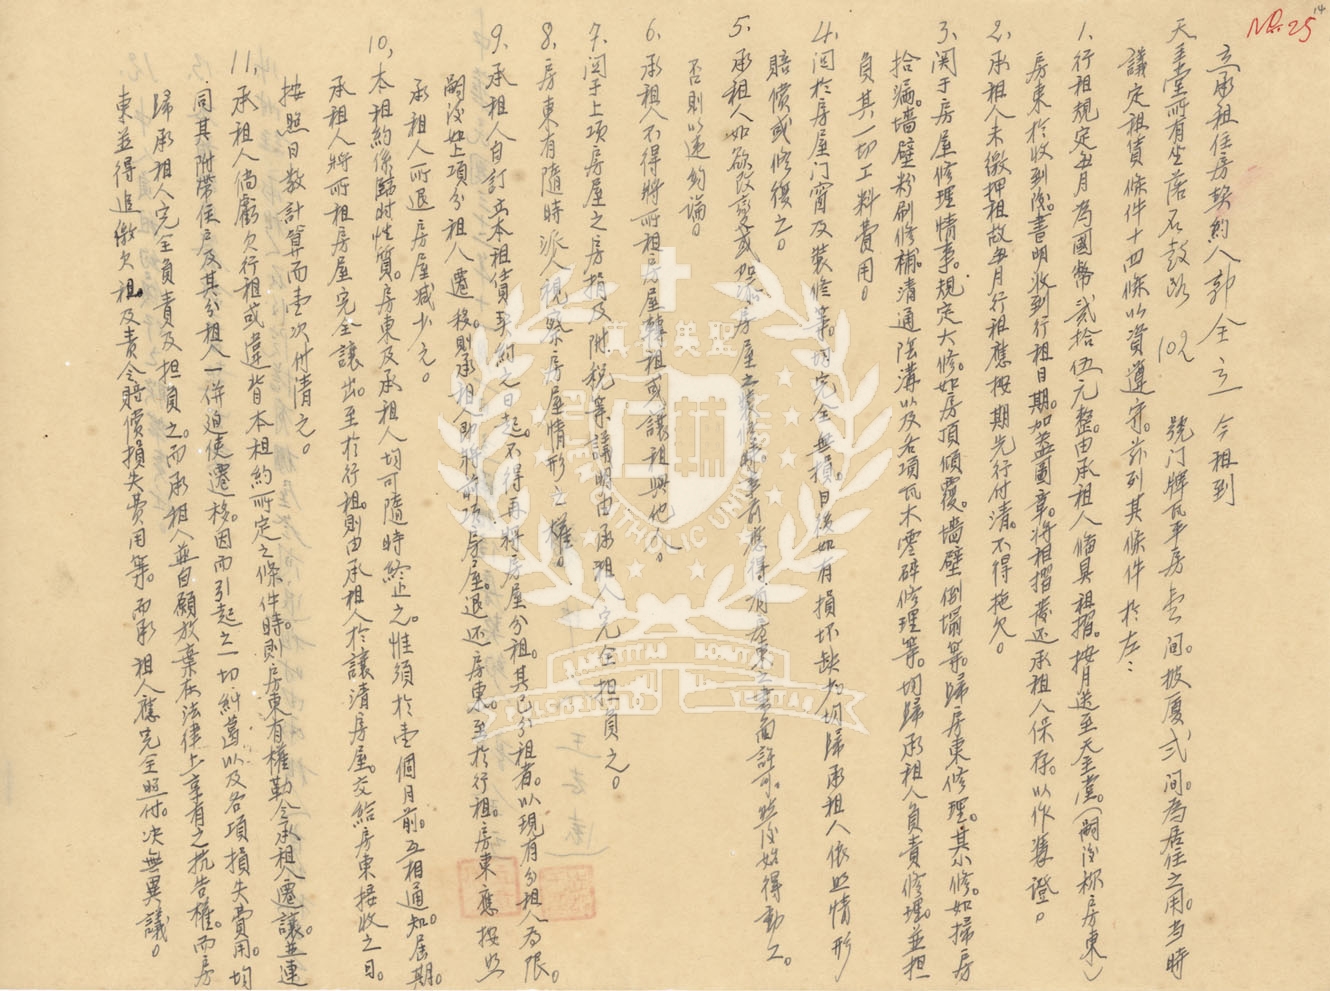 14
No. 25
立承租住房契約人郭全立 今租到
天主堂所有坐落石鼓路 102 號门牌瓦平房壹间。披厦弍间。為居住之用。当時
議定租賃條件十四條以資遵守。茲列其條件於左：
1. 行租規定每月為國幣貳拾伍元整。由承租人備具租摺。按月送至天主堂。（嗣後称房東）
房東於收到後。書明收到行租日期。加盖圖章。將租摺發还承租人保存。以作憑證。
2. 承租人未繳押租故每月行租應按期先行付清。不得拖欠。
3. 関于房屋修理情事。規定大修。如房頂傾覆。墙壁倒塌等。歸房東修理。其小修。如掃房
拾漏。墙壁粉刷修補。清通陰溝以及各項瓦木零碎修理等。均歸承租人負責修理。並担
負其一切工料費用。
4. 関於房屋门窗及裝修等。均完全無損。日後如有損坏缺少均歸承租人依照情形
賠償或修復之。
5. 承租人如欲改變或添房屋之裝修時。事前應得有房東之書面許可。然後始得動工。
否則以违約論。
6. 承租人不得將所租房屋轉租或讓租與他人。
7. 関于上項房屋之房捐及附税等議明由承租人完全担負之。
8. 房東有隨時派人視察房屋情形之權。
9. 承租人自訂立本租賃契約之日起。不得再將房屋分租。其已分租者。以現有分租人為限。
嗣後如上項分租人遷移。則承租人即將前項房屋。退还房東。至於行租。房東應按照
承租人所退房屋減少之。
10. 本租約係臨時性質。房東及承租人均可隨時終止之。惟須於壹個月前。互相通知。届期。
承租人將所租房屋完全讓出。至於行租。則由承租人於讓清房屋。交給房東接收之日。
按照日数計算而壹次付清之。
11. 承租人倘虧欠行租或違背本租約所定之條件時。則房東有權勒令承租人遷讓。並連
同其附帶住户及其分租人一併迫使遷移。因而引起之一切糾葛以及各項損失費用。均
歸承租人完全負責及担負之。而承租人並自願放棄在法律上享有之抗告權。而房
東並得追繳欠租及責令賠償損失費用等。而承租人應完全照付。決無異議。